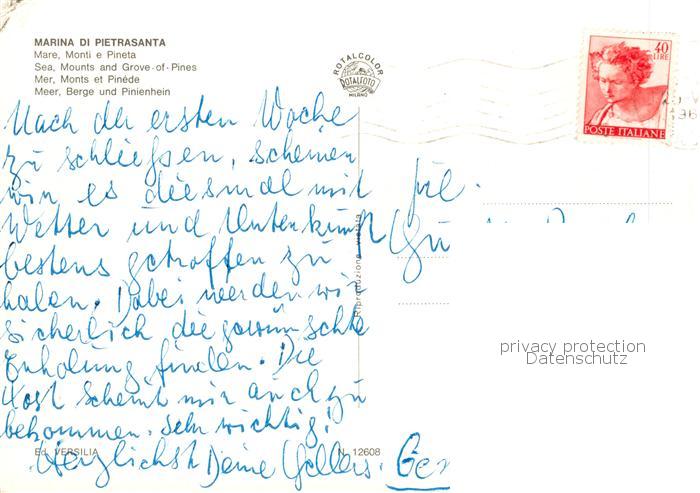 MARINA DI PIETRASANTA
Mare, Monti e Pineta
Sea, Mounts and Grove-of-Pines
Mer, Monts et Pinéde
Meer, Berge und Pinienhein
ROTALCOLOR
ROTALFOTO
MILANO
40
LIRE
POSTE ITALIANE
Nach der ersten Woche
zu schließen, scheinen
wir es diesmal mit
Wetter und Unterkunft
bestens getroffen zu
haben. Dabei werden wir
sicherlich die gewünschte
Erholung finden. Die
Kost scheint mir auch zu
bekommen. Sehr wichtig!
Herzlichst Deine
Riproduzione vietata
privacy protection
Datenschutz
Ed. VERSILIA
N. 12608